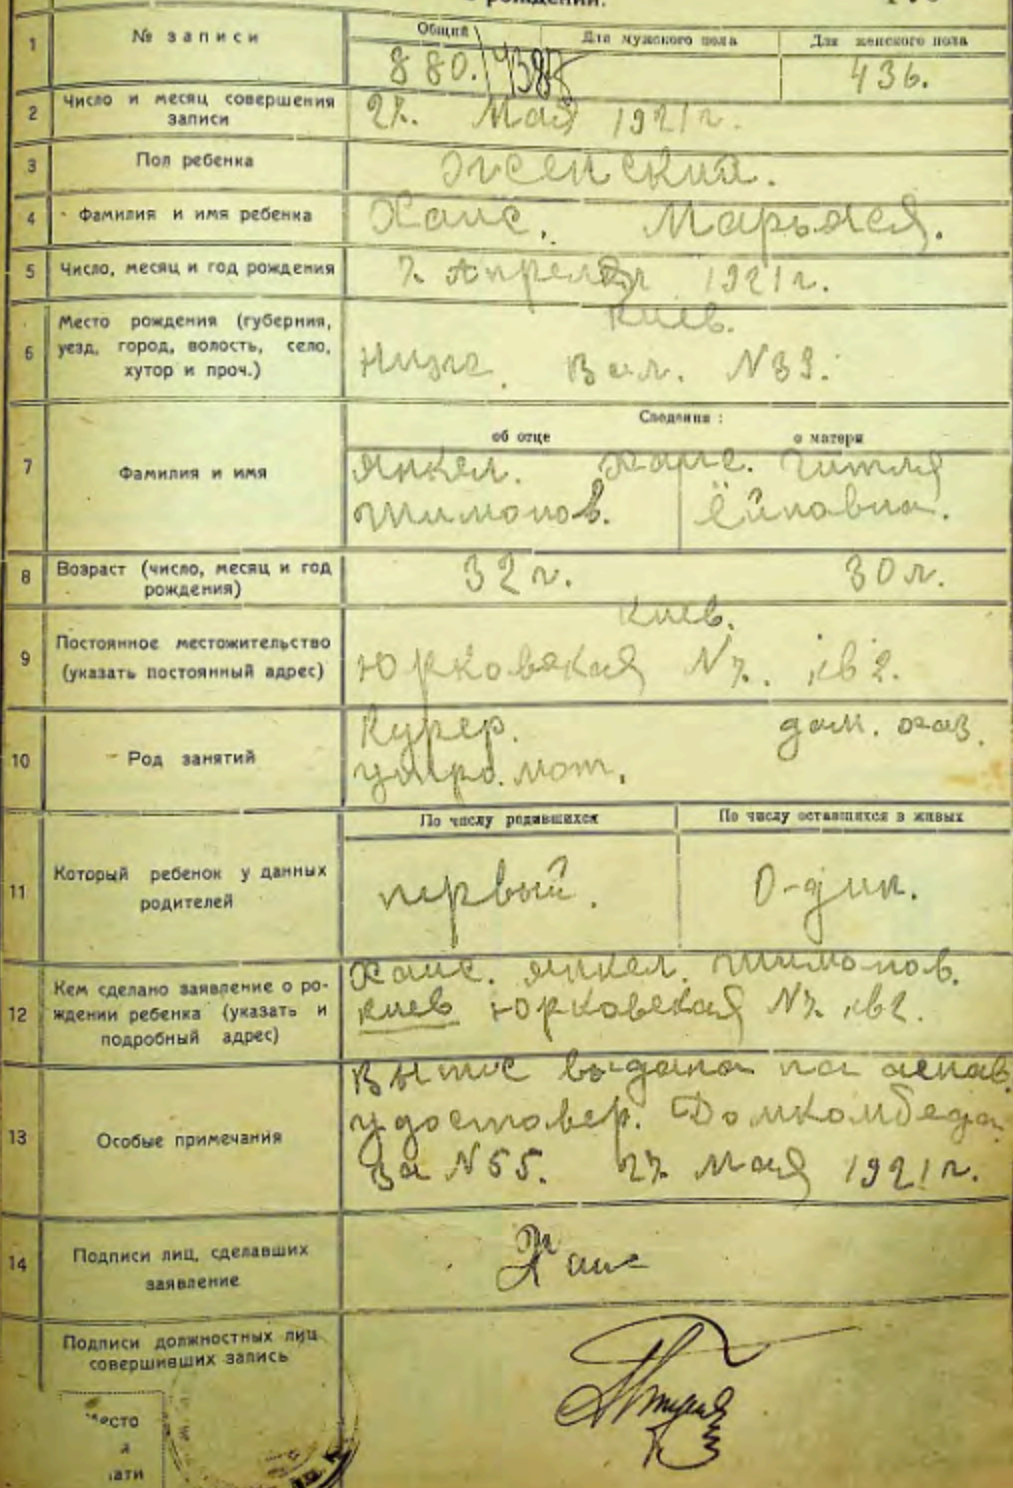 о рождении.
1 № записи Общий Для мужского пола Для женского пола
880. 436.
2 Число и месяц совершения
записи
27. Мая 1921 г.
3 Пол ребенка Женский.
4 Фамилия и имя ребенка Хаис. Марьяся.
5 Число, месяц и год рождения 7. Апреля 1921 г.
6 Место рождения (губерния,
уезд, город, волость, село,
хутор и проч.)
Киев.
Ниж. Вал. №39.
Сведения:
об отце о матери
7 Фамилия и имя
Янкел. Хаис. Гитля
Шимонов. Ёйновна.
8 Возраст (число, месяц и год
рождения)
32 г. 30 л.
9 Постоянное местожительство
(указать постоянный адрес)
Киев.
Юрковская №7. кв 2.
10 Род занятий
Курер. дом. хоз.
11 Который ребенок у данных
родителей
По числу родившихся По числу оставшихся в живых
первый. О-дин.
12 Кем сделано заявление о ро-
ждении ребенка (указать и
подробный адрес)
Хаис. Янкел. Шимонов.
Киев Юрковская №7. кв 2.
13 Особые примечания
выдана на
удостовер. Домкомбеда
за №55. 27. Мая 1921 г.
14 Подписи лиц, сделавших
заявление
Хаис
Подписи должностных лиц
совершивших запись
место